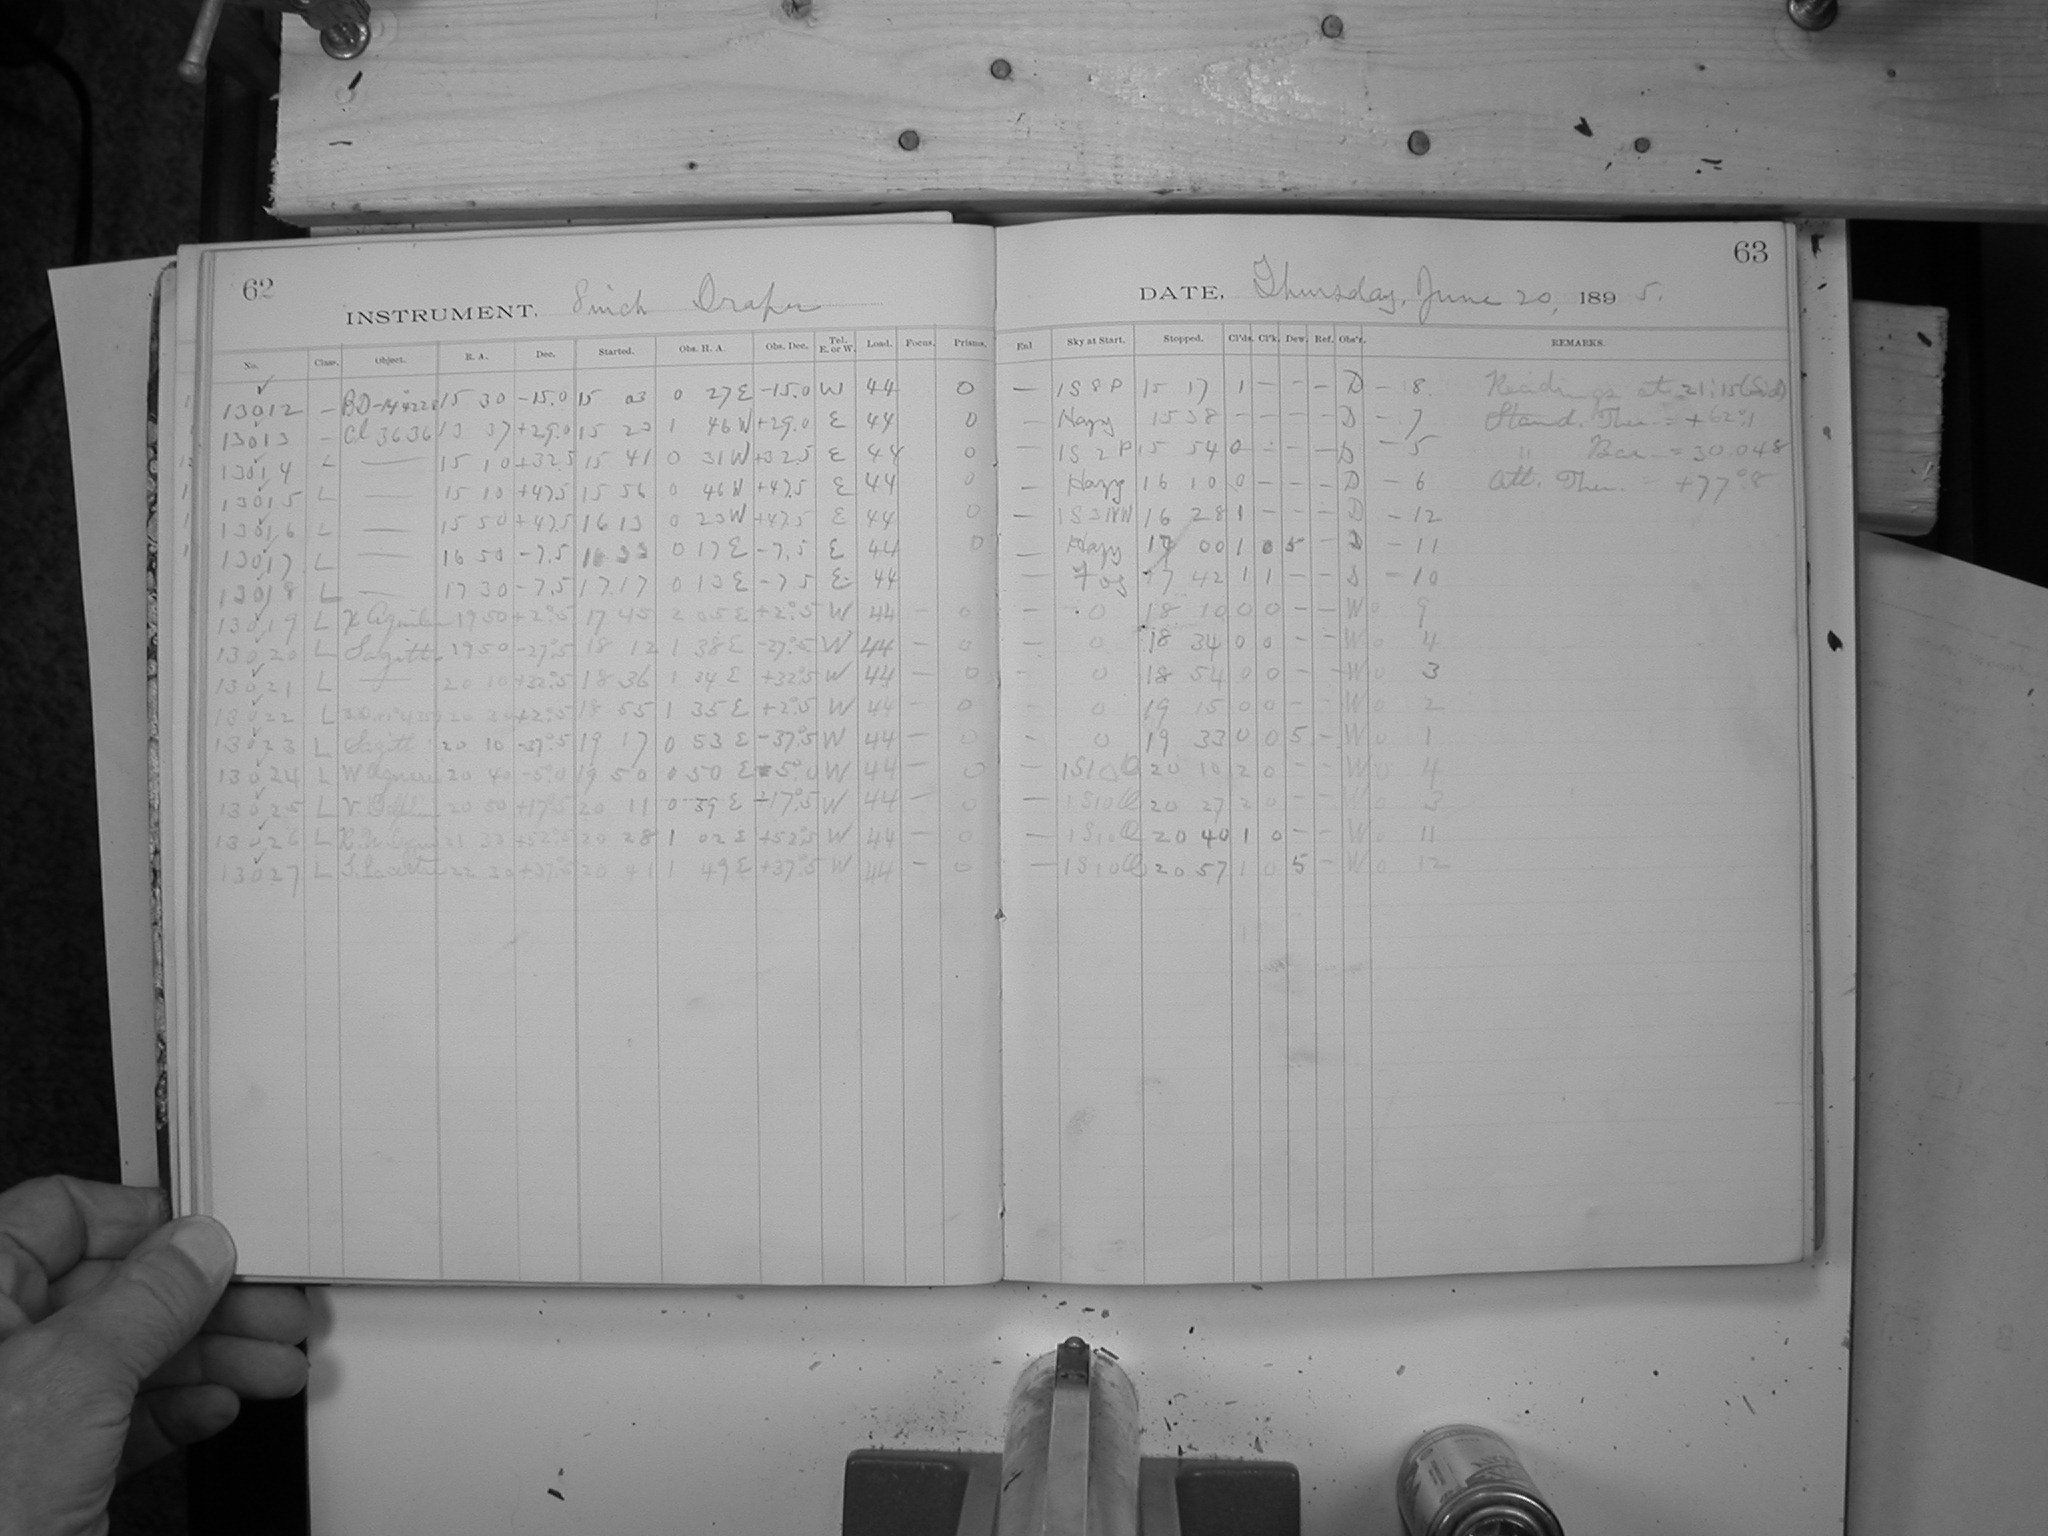 62
INSTRUMENT. 8 inch Draper
No. Class. Object. R. A. Dec. Started. Obs. H. A. Obs. Dec. Tel. E. or W. Load. Focus. Prisms.
13012 — BD -14° 15 30 -15.0 15 03 0 27 E -15.0 W 44 0
13013 — Cl 3636 13 37 +29.0 15 23 1 46 W +29.0 E 44 0
13014 L — 15 10 +32.5 15 41 0 31 W +32.5 E 44 0
13015 L — 15 10 +47.5 15 56 0 46 W +47.5 E 44 0
13016 L — 15 50 +47.5 16 13 0 23 W +47.5 E 44 0
13017 L — 16 50 -7.5 16 33 0 17 E -7.5 E 44 0
13018 L — 17 30 -7.5 17 17 0 13 E -7.5 E 44
13019 L Aquilae 19 50 +2°.5 17 45 2 05 E +2°.5 W 44 — 0
13020 L Sagitt. 19 50 -27°.5 18 12 1 38 E -27°.5 W 44 — 0
13021 L — 20 10 +32°.5 18 36 1 34 E +32°.5 W 44 — 0
13022 L 20 30 +2°.5 18 55 1 35 E +2°.5 W 44 — 0
13023 L Sagitt 20 10 -37°.5 19 17 0 53 E -37°.5 W 44 — 0
13024 L W 20 40 -5°.0 19 50 0 50 E -5°.0 W 44 — 0
13025 L 20 50 +17°.5 20 11 0 39 E +17°.5 W 44 — 0
13026 L 21 30 +52°.5 20 28 1 02 E +52°.5 W 44 — 0
13027 L 22 30 +37°.5 20 41 1 49 E +37°.5 W 44 — 0
63
DATE, Thursday, June 20, 1895.
Enl Sky at Start. Stopped. Cl'ds. Cl'k. Dew. Ref. Obs'r. REMARKS.
— 1S8P 15 17 1 — — — D — 8. Readings at 21:15 (Sid)
— Hazy 15 38 — — — — D — 7 Stand. Ther. = +62°.1
— 1S2P 15 54 0 — — — D — 5 " Bar. = 30.048
— Hazy 16 10 0 — — — D — 6 Att. Ther. = +77°.8
— 16 28 1 — — — D — 12
— Hazy 17 00 1 0 5 — D — 11
— Fog 17 42 1 1 — — D — 10
— 0 18 10 0 0 — — W 0 9
— 0 18 34 0 0 — — W 0 4
— 0 18 54 0 0 — — W 0 3
— 0 19 15 0 0 — — W 0 2
— 0 19 33 0 0 5 — W 0 1
— 1S10Q 20 10 2 0 — — W 0 4
— 1S10Q 20 27 2 0 — — W 0 3
— 1S10Q 20 40 1 0 — — W 0 11
— 1S10Q 20 57 1 0 5 — W 0 12